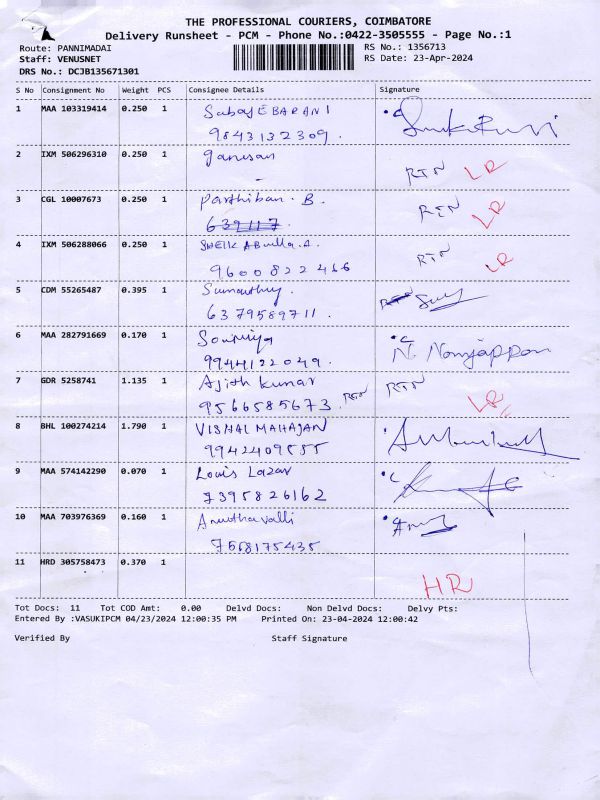 THE PROFESSIONAL COURIERS, COIMBATORE
Delivery Runsheet - PCM - Phone No.:0422-3505555 - Page No.:1
Route: PANNIMADAI RS No.: 1356713
Staff: VENUSNET RS Date: 23-Apr-2024
DRS No.: DCJB135671301
S No Consignment No Weight PCS Consignee Details Signature
1 MAA 103319414 0.250 1
9843132309.
2 IXM 506296310 0.250 1 ganesan RTN LR
-
3 CGL 10007673 0.250 1 Parthiban. B. RTN LR
639117.
4 IXM 506288066 0.250 1 SHEIK Abdulla.A. RTN LR
9600822466
5 CDM 55265487 0.395 1 Sumathy.
6379589711.
6 MAA 282791669 0.170 1 Soumiya N. Nanjappan
9944122049.
7 GDR 5258741 1.135 1 Ajith kumar RTN
9566585673. RTN LR
8 BHL 100274214 1.790 1 VISHAL MAHAJAN
9942409555
9 MAA 574142290 0.070 1 Louis Lazar
7395826162
10 MAA 703976369 0.160 1 Amuthavalli
7568175435
11 HRD 305758473 0.370 1 HR
Tot Docs: 11 Tot COD Amt: 0.00 Delvd Docs: Non Delvd Docs: Delvy Pts:
Entered By :VASUKIPCM 04/23/2024 12:00:35 PM Printed On: 23-04-2024 12:00:42
Verified By Staff Signature